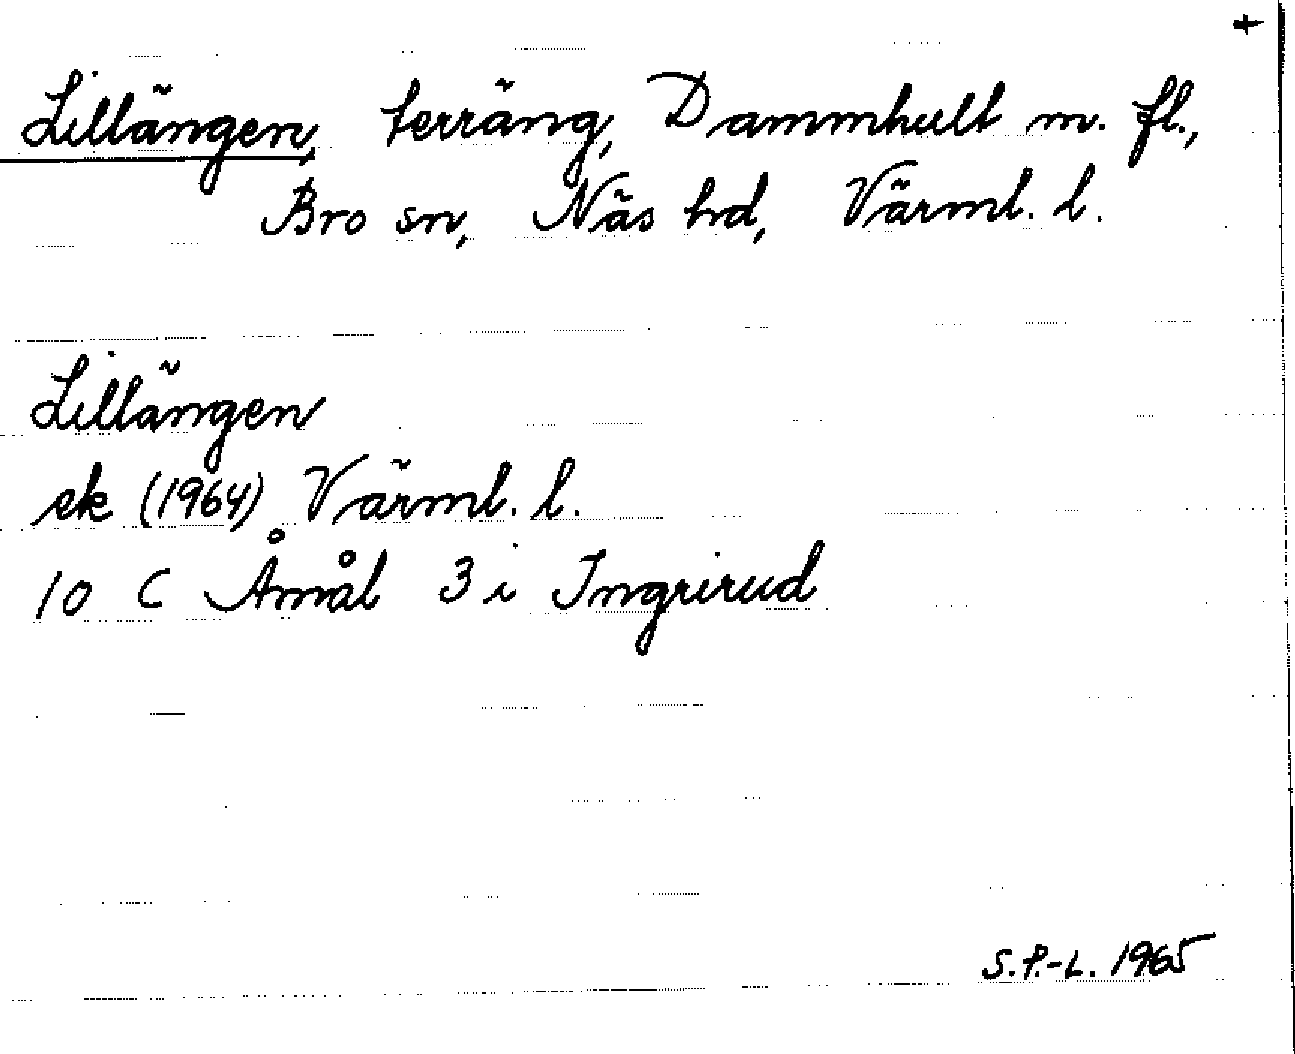 +
Lillängen, terräng, Dammhult m. fl.,
Bro sn, Näs hd, Värml. l.
Lillängen
ek (1964) Värml. l.
10 C Åmål 3 i Ingrirud
S.P.-L. 1965